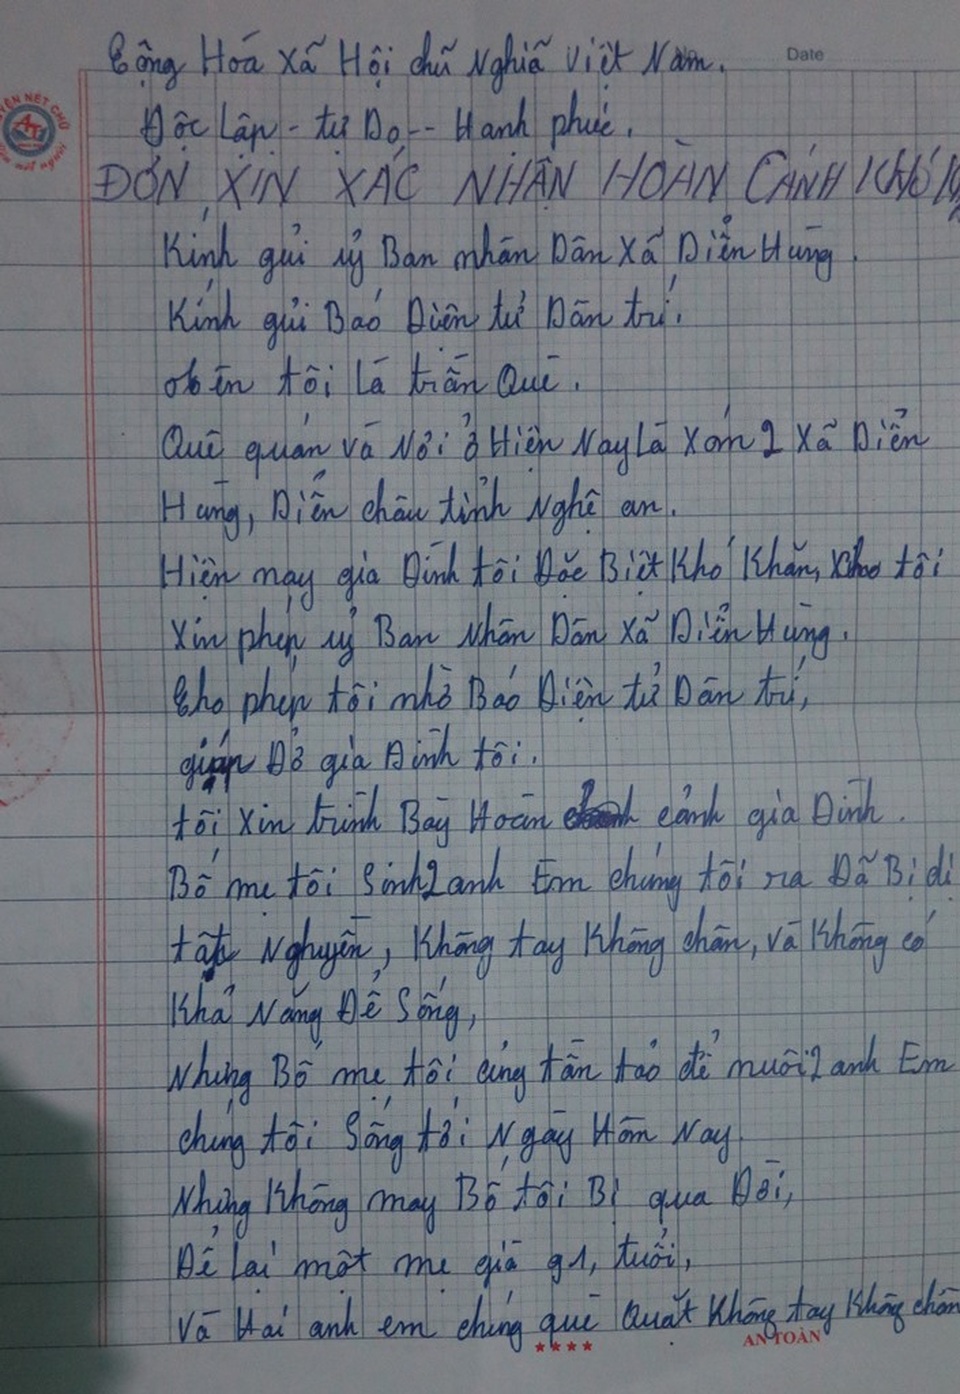 Cộng Hoá Xã Hội chũ Nghiã việt Nam.
No Date
Độc Lập - tự Do -- Hanh phúc.
ĐƠN XIN XÁC NHẬN HOÀN CẢNH KHÓ
Kính gửi uỷ Ban nhân Dân Xã Diễn Hùng.
Kính gửi Baó Điện tử Dân trí.
tôi là trần Quê.
Quê quán và Nơi ở Hiện Nay Là Xóm 2 Xã Diễn
Hùng, Diễn châu tỉnh Nghệ an.
Hiện nay gia Đình tôi Đặc Biệt Khó Khăn, cho tôi
Xin phép uỷ Ban Nhân Dân Xã Diễn Hùng.
Cho phép tôi nhờ Báo Điện tử Dân trí,
giúp Đở gia Đình tôi.
tôi Xin trình Bày Hoàn cảnh gia Đình.
Bố mẹ tôi Sinh 2 anh Em chúng tôi ra Đã Bị di
tật Nghuyền, Không tay Không chân, và Không có
Khả Năng Để Sống,
Nhưng Bố mẹ tôi cũng tần tảo để nuôi 2 anh Em
chúng tôi Sống tới Ngày Hôm Nay.
Nhưng Không may Bố tôi Bị qua Đời,
Để Lại một mẹ già 91, tuổi,
Và Hai anh em chúng què Quặt Không tay Không chân
AN TOÀN